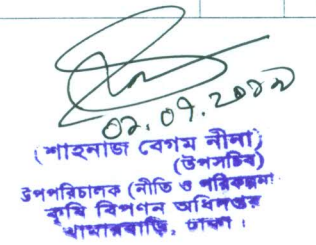 ০২.০৭.২০১৯
(শাহনাজ বেগম নীনা)
(উপসচিব)
উপপরিচালক (নীতি ও পরিকল্পনা
কৃষি বিপণন অধিদপ্তর
খামারবাড়ি, ঢাকা।